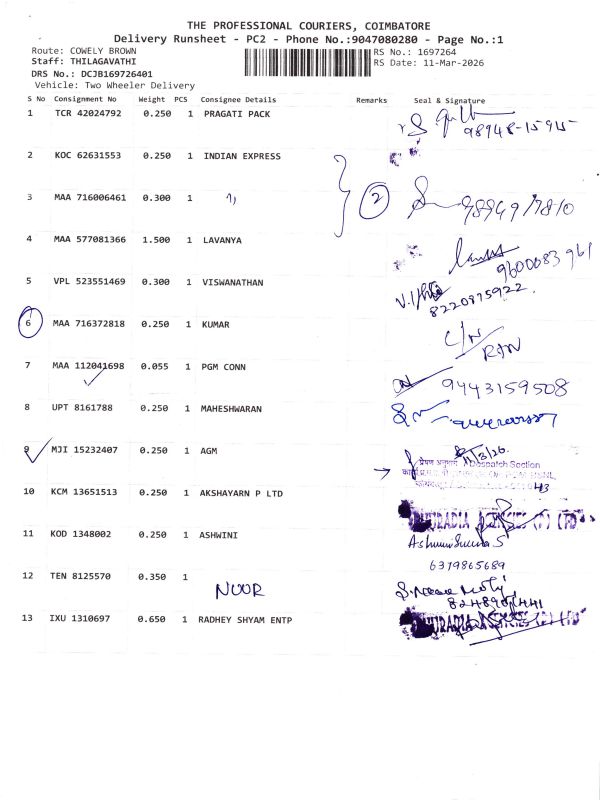 THE PROFESSIONAL COURIERS, COIMBATORE
Delivery Runsheet - PC2 - Phone No.:9047080280 - Page No.:1
Route: COWELY BROWN
RS No.: 1697264
Staff: THILAGAVATHI
RS Date: 11-Mar-2026
DRS No.: DCJB169726401
Vehicle: Two Wheeler Delivery
S No Consignment No Weight PCS Consignee Details Remarks Seal & Signature
1 TCR 42024792 0.250 1 PRAGATI PACK
98948-15945
2 KOC 62631553 0.250 1 INDIAN EXPRESS
3 MAA 716006461 0.300 1 2
4 MAA 577081366 1.500 1 LAVANYA
9600083961
5 VPL 523551469 0.300 1 VISWANATHAN
8220875922
6 MAA 716372818 0.250 1 KUMAR
C/N
RAN
7 MAA 112041698 0.055 1 PGM CONN
9443159508
8 UPT 8161788 0.250 1 MAHESHWARAN
9 MJI 15232407 0.250 1 AGM
11/3/26
प्रेषण अनुभाग Despatch Section
10 KCM 13651513 0.250 1 AKSHAYARN P LTD
ANURADIA AGENCIES (P) LTD
11 KOD 1348002 0.250 1 ASHWINI
6379865689
12 TEN 8125570 0.350 1 NOOR
13 IXU 1310697 0.650 1 RADHEY SHYAM ENTP
ANURADIA AGENCIES (P) LTD